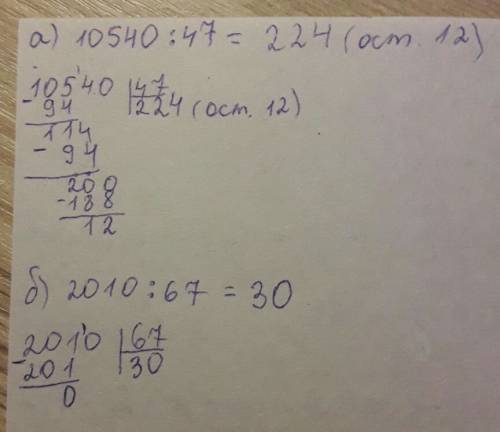 а) 10540 : 47 = 224 (ост. 12)
10540 | 47
- 94 224 (ост. 12)
114
- 94
200
- 188
12
б) 2010 : 67 = 30
2010 | 67
- 201 30
0